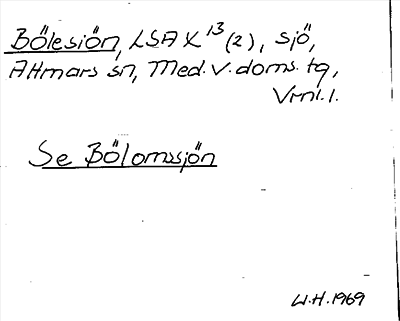 Bölesjön, LSA X 13 (2), sjö,
Attmars sn, Med. v. doms. tg,
Vrnl. l.
Se Bölomssjön
W.H. 1969